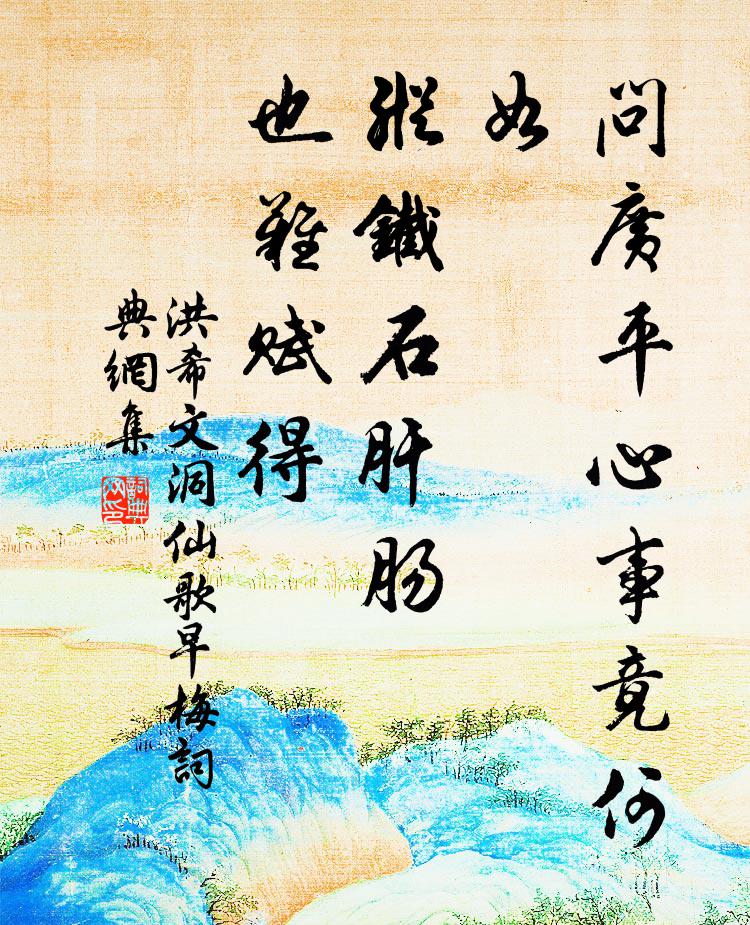 問廣平心事竟何
如
縱鐵石肝腸
也難賦得
洪希文洞仙歌早梅詞
典網集
詞典網印